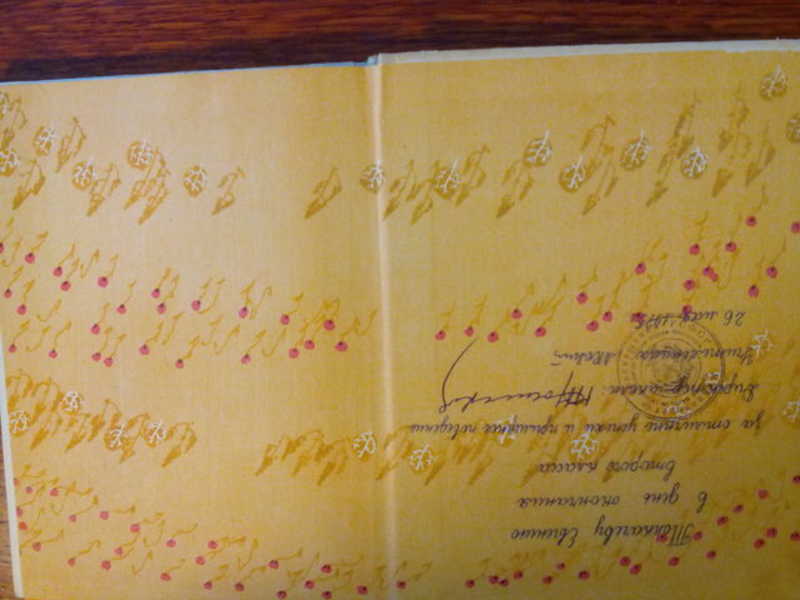 Евгению
в день окончания
второго класса
за отличные успехи и примерное поведение
Директор школы:
Учительница
26 мая 1978